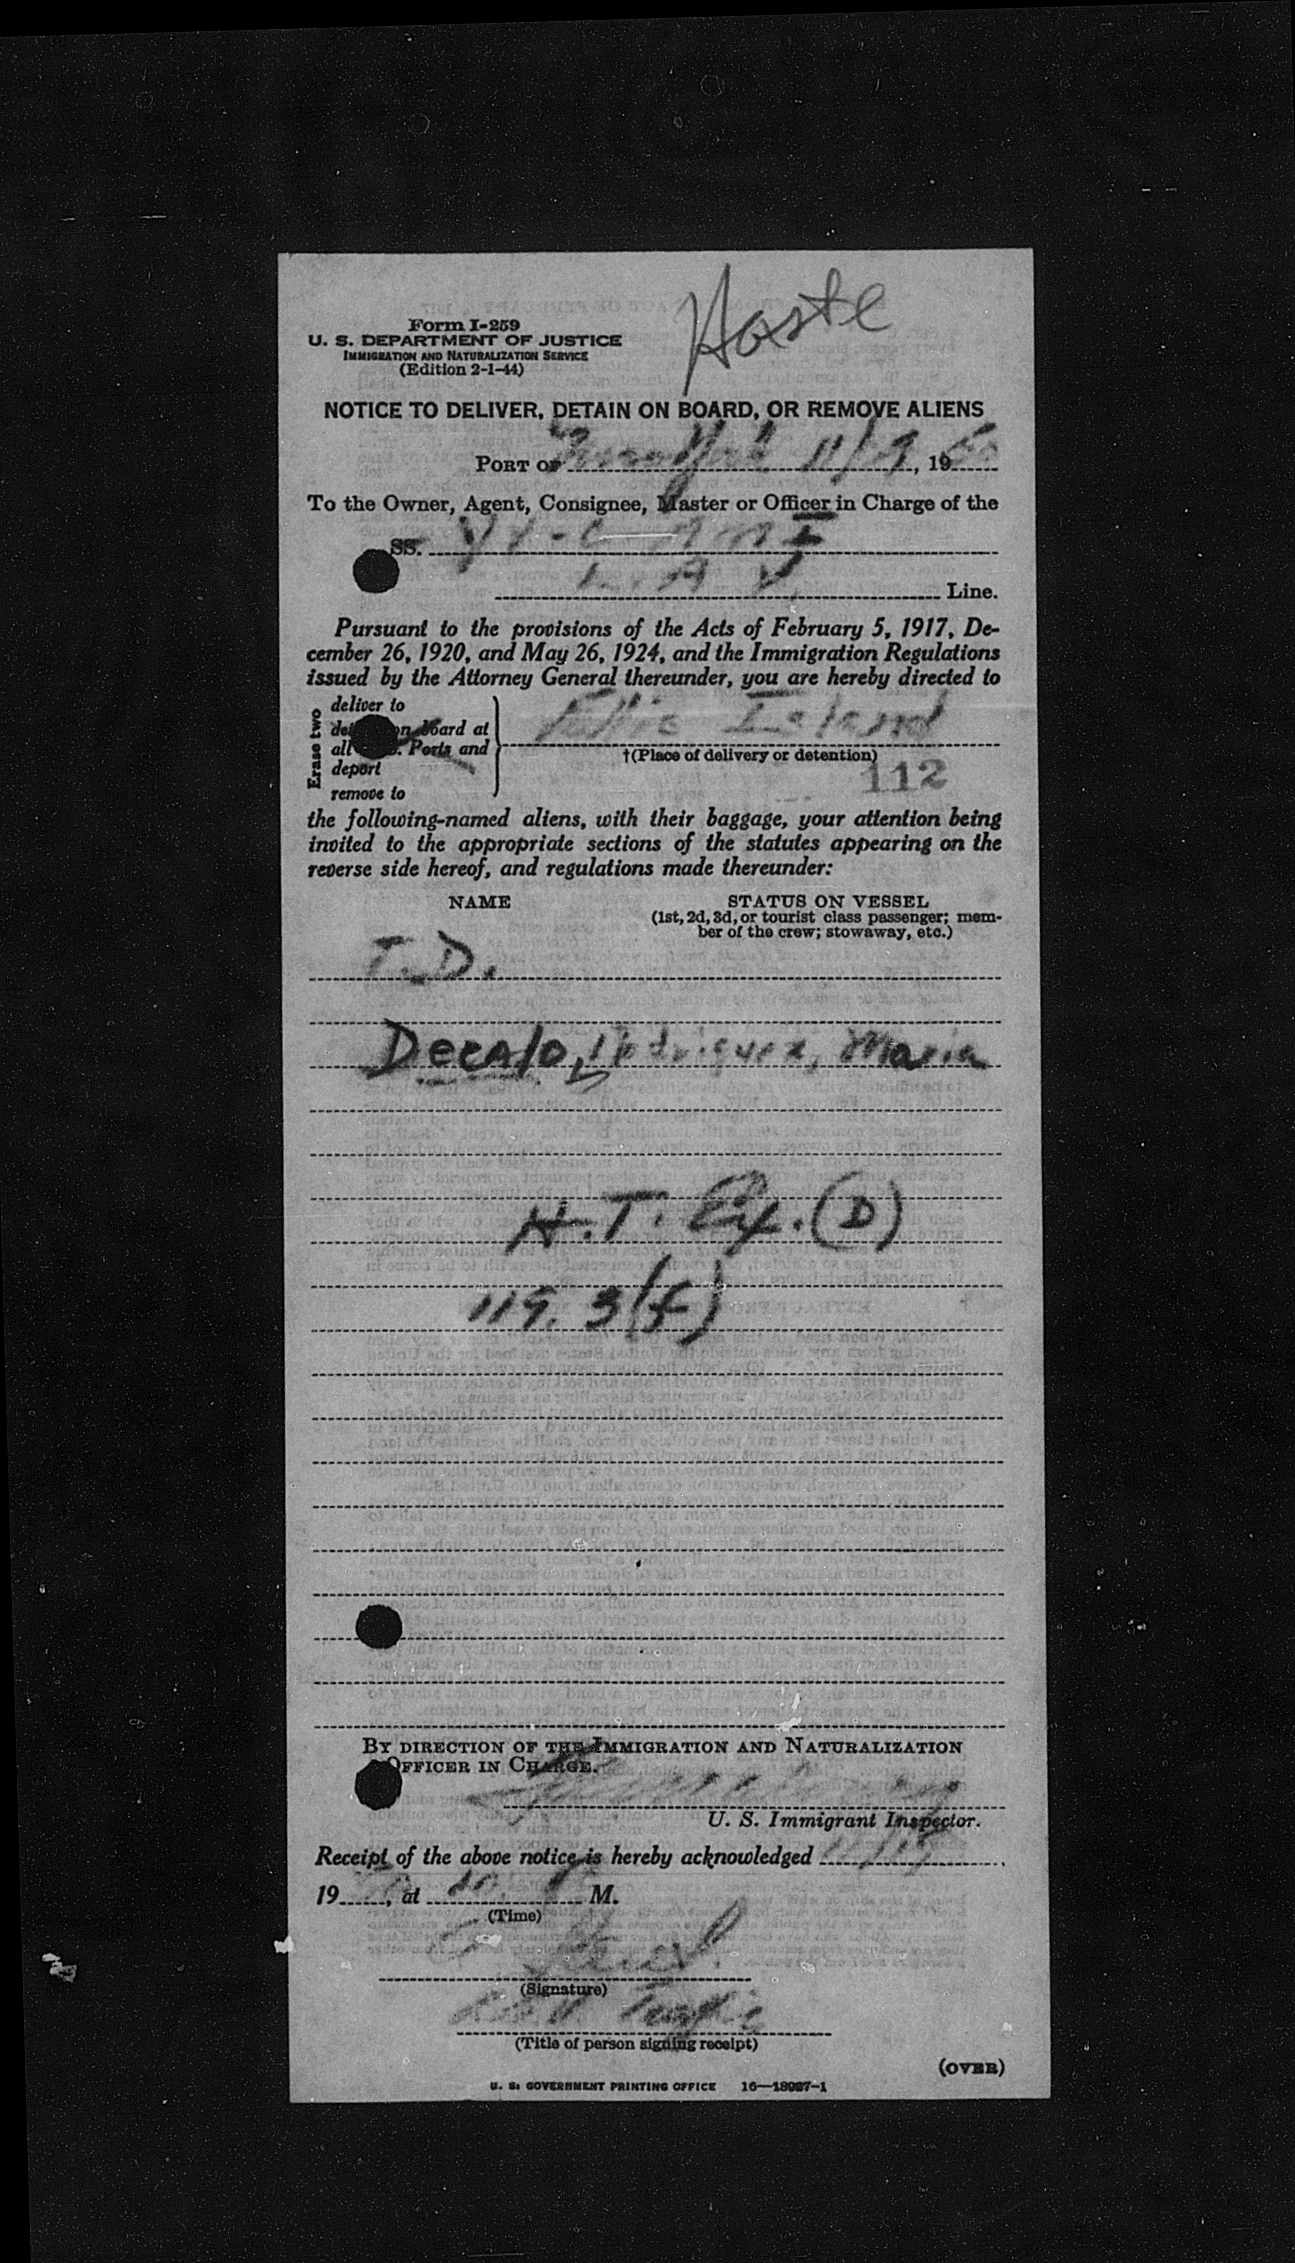 Haste
Form I-259
U. S. DEPARTMENT OF JUSTICE
IMMIGRATION AND NATURALIZATION SERVICE
(Edition 2-1-44)
NOTICE TO DELIVER, DETAIN ON BOARD, OR REMOVE ALIENS
PORT OF New York 11/19, 1950
To the Owner, Agent, Consignee, Master or Officer in Charge of the
SS. YV-C-AMI
L.A.V. Line.
Pursuant to the provisions of the Acts of February 5, 1917, De-
cember 26, 1920, and May 26, 1924, and the Immigration Regulations
issued by the Attorney General thereunder, you are hereby directed to
Erase two
deliver to
on board at
all Ports and
deport
remove to
Ellis Island
†(Place of delivery or detention)
112
the following-named aliens, with their baggage, your attention being
invited to the appropriate sections of the statutes appearing on the
reverse side hereof, and regulations made thereunder:
NAME
STATUS ON VESSEL
(1st, 2d, 3d, or tourist class passenger; mem-
ber of the crew; stowaway, etc.)
T.D.
Decalo, Rodriguez, Maria
H.T. Ex. (D)
119. 3(f)
BY DIRECTION OF THE IMMIGRATION AND NATURALIZATION
OFFICER IN CHARGE.
U. S. Immigrant Inspector.
Receipt of the above notice is hereby acknowledged 11/19,
19 50, at M.
(Time)
(Signature)
(Title of person signing receipt)
(OVER)
U. S. GOVERNMENT PRINTING OFFICE 16—18027-1